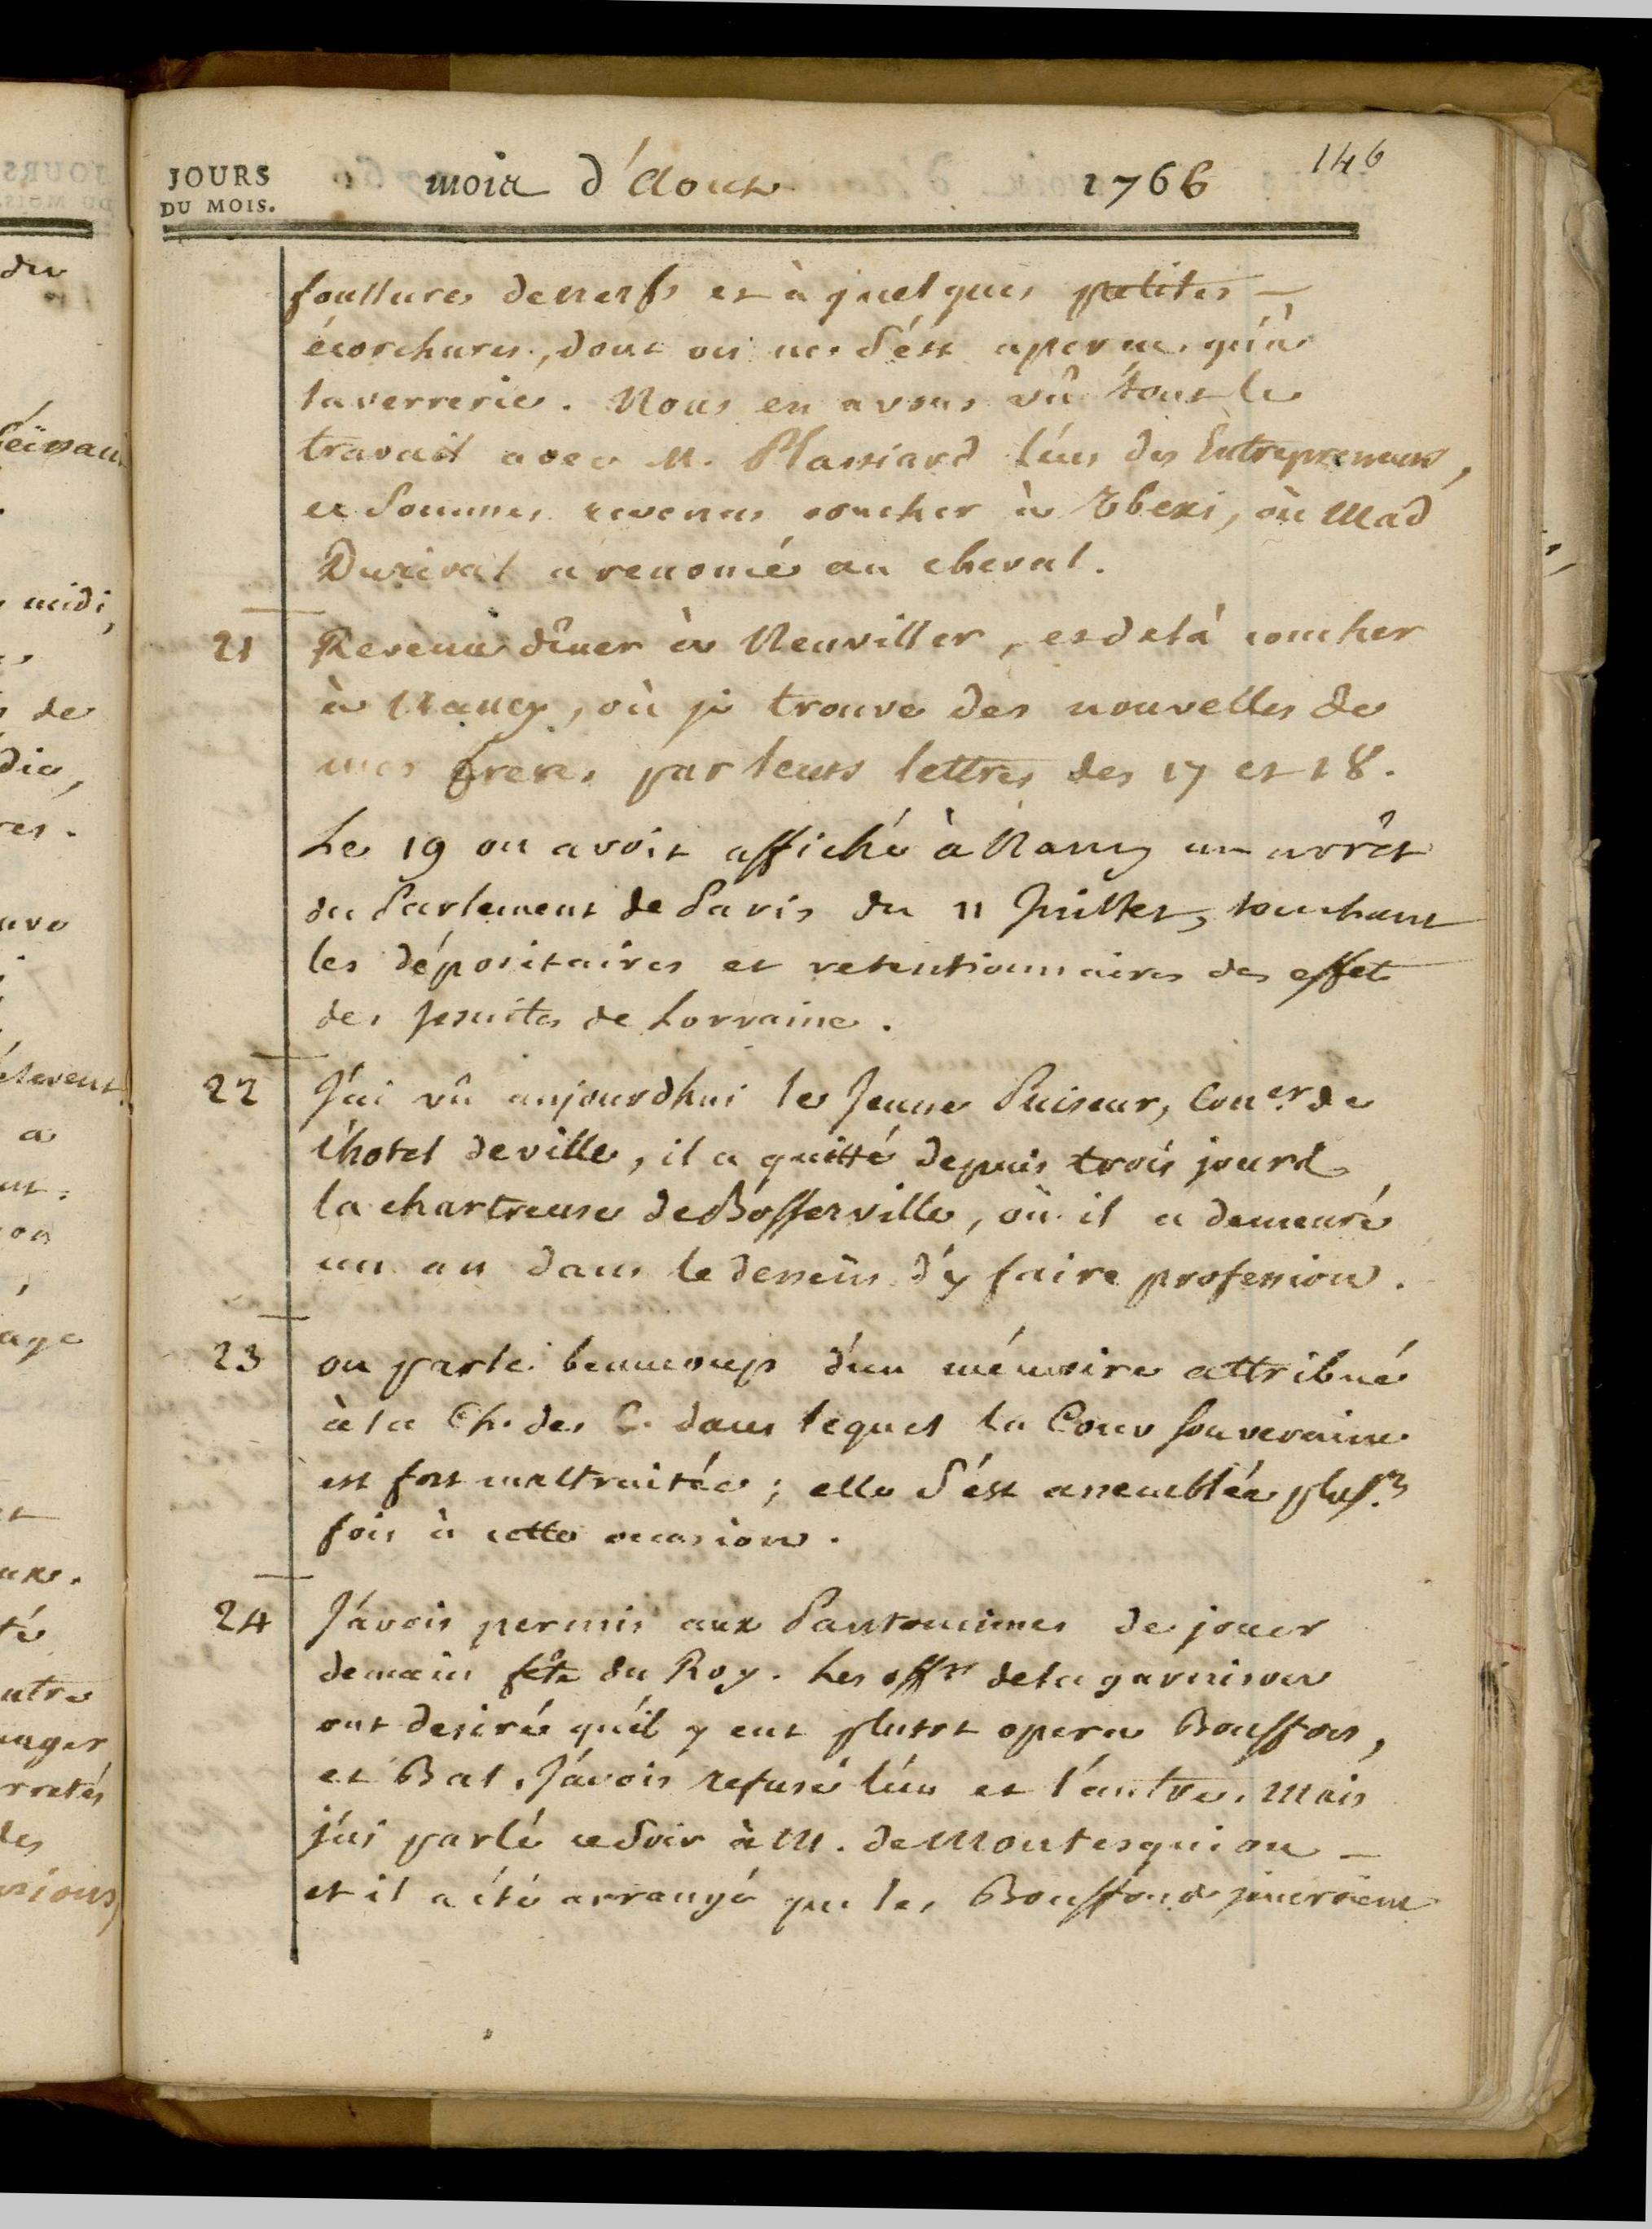 JOURS
DU MOIS.
mois d'Aout 1766
146
foullures de nerfs et à quelques petites —
écorchures, dont on ne s'est aperçu qu'à
la verrerie. Nous en avons vû tout le
travail avec M. Plassiard l'un des Entrepreneurs,
et sommes revenus coucher à Tbexi, où Mad
Durival a renoncé au cheval.
21 Revenu dîner à Neuviller, et delà coucher
à Nancy, où je trouve des nouvelles de
mes freres, par leurs lettres des 17 et 18.
Le 19 on avoit affiché à Nancy un arrêt
du Parlement de Paris du 11 Juillet, touchant
les dépositaires et retentionnaires des effets
des Jesuites de Lorraine.
22 J'ai vû aujourdhui le Jeune Puiseur, Coner. de
l'hotel de ville, il a quitté depuis trois jours
la chartreuse de Bosserville, où il a demeuré
un an dans le dessein d'y faire profession.
23 on parle beaucoup d'un mémoire attribué
à la Ch. des C. dans lequel la Cour souveraine
est fort maltraitée; elle s'est assemblée plusrs
fois à cette occasion.
24 J'avois permis aux Pantomimes de jouer
demain fête du Roy. Les offrs de la garnison
ont desiré qu'il y eut plutot opera Bouffon,
et Bal. J'avois refusé l'un et l'autre. Mais
j'ai parlé ce soir à M. de Montesquiou —
et il a été arrangé que les Bouffons joueroient
du
midi,
de
a
on
age
utre
des